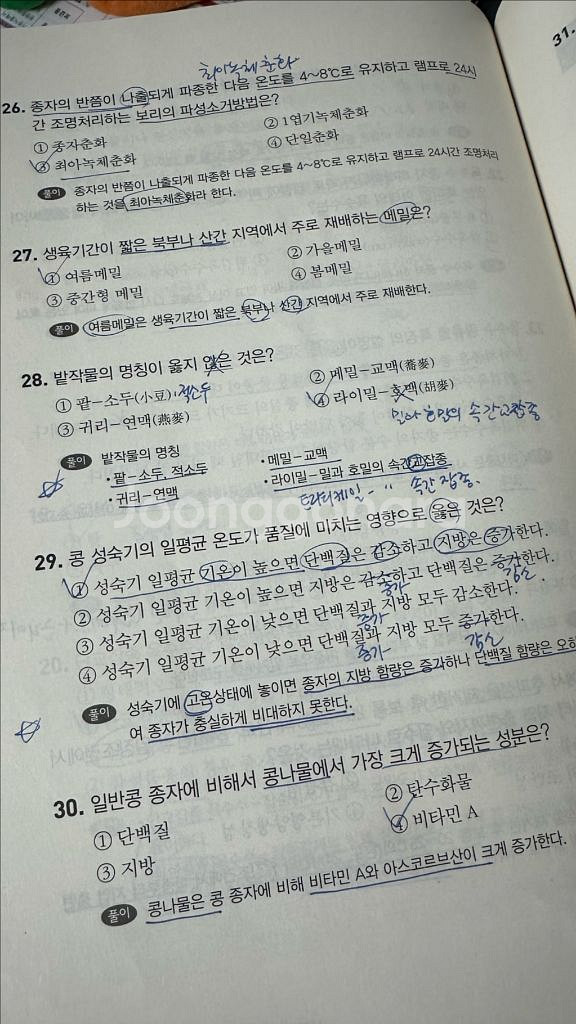 31.
최아녹체춘화
26. 종자의 반쯤이 나출되게 파종한 다음 온도를 4~8℃로 유지하고 램프로 24시
간 조명처리하는 보리의 파성소거방법은?
① 종자춘화 ② 1엽기녹체춘화
③ 최아녹체춘화 ④ 단일춘화
풀이 종자의 반쯤이 나출되게 파종한 다음 온도를 4~8℃로 유지하고 램프로 24시간 조명처리
하는 것을 최아녹체춘화라 한다.
27. 생육기간이 짧은 북부나 산간 지역에서 주로 재배하는 메밀은?
① 여름메밀 ② 가을메밀
③ 중간형 메밀 ④ 봄메밀
풀이 여름메밀은 생육기간이 짧은 북부나 산간 지역에서 주로 재배한다.
28. 밭작물의 명칭이 옳지 않은 것은?
① 팥-소두(小豆), 적소두 ② 메밀-교맥(蕎麥)
③ 귀리-연맥(燕麥) ④ 라이밀-호맥(胡麥)
밀과 호밀의 속간교잡종
풀이 밭작물의 명칭
• 팥-소두, 적소두 • 메밀-교맥
• 귀리-연맥 • 라이밀-밀과 호밀의 속간교잡종
트리티케일 - " 속간잡종.
Joongdonara
29. 콩 성숙기의 일평균 온도가 품질에 미치는 영향으로 옳은 것은?
① 성숙기 일평균 기온이 높으면 단백질은 감소하고 지방은 증가한다.
② 성숙기 일평균 기온이 높으면 지방은 감소하고 단백질은 증가한다.
증가 감소.
③ 성숙기 일평균 기온이 낮으면 단백질과 지방 모두 감소한다.
증가
④ 성숙기 일평균 기온이 낮으면 단백질과 지방 모두 증가한다.
증가 감소
풀이 성숙기에 고온상태에 놓이면 종자의 지방 함량은 증가하나 단백질 함량은 오히
여 종자가 충실하게 비대하지 못한다.
30. 일반콩 종자에 비해서 콩나물에서 가장 크게 증가되는 성분은?
① 단백질 ② 탄수화물
③ 지방 ④ 비타민 A
풀이 콩나물은 콩 종자에 비해 비타민 A와 아스코르브산이 크게 증가한다.